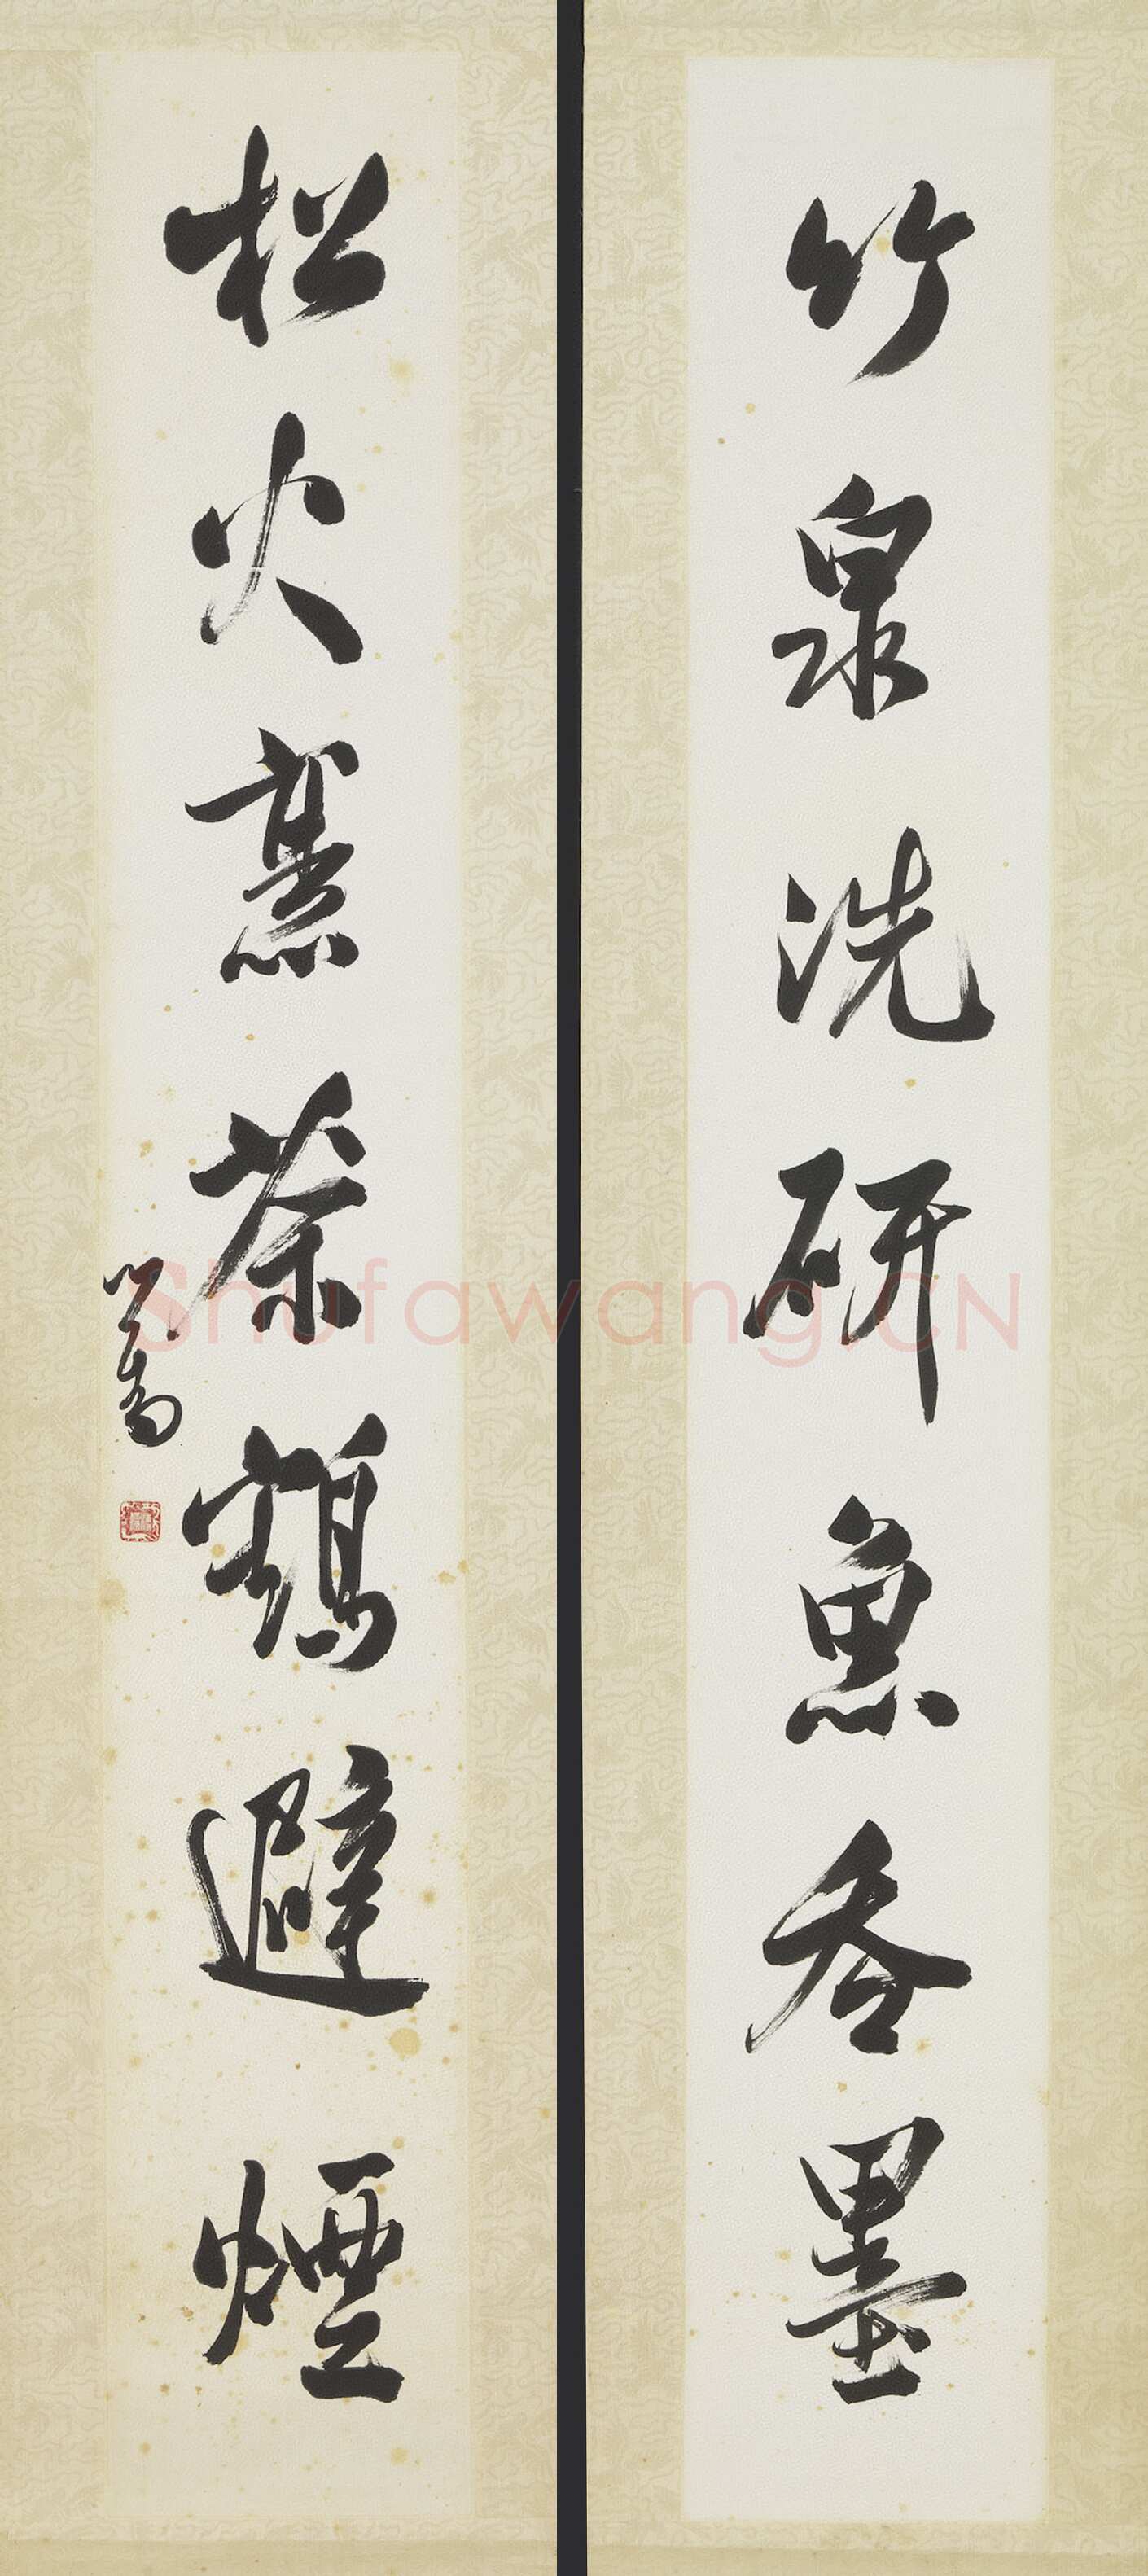 竹泉洗研魚吞墨
松火熏茶鶴避煙
溥儒
Shufawang.CN